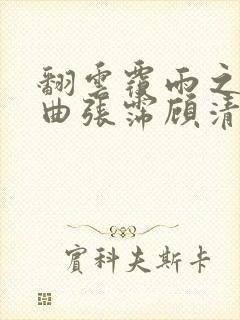 翻雲覆雨之
曲張霈顾清
賓科夫斯卡